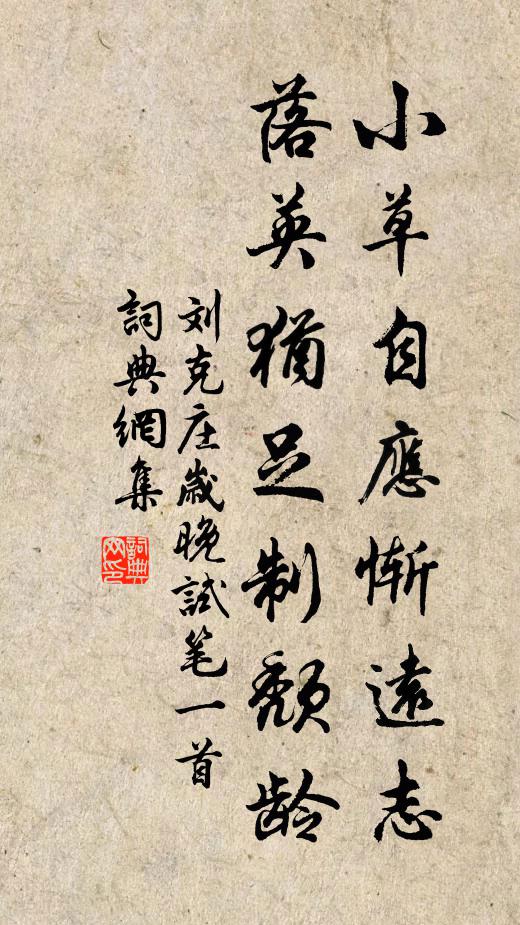 小草自應慚遠志
落英猶足制頹龄
刘克庄歲晚試笔一首
詞典網集
詞典
网印